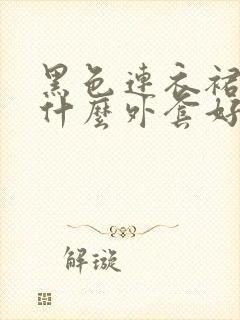 黑色連衣裙
什麼外套好
解璇